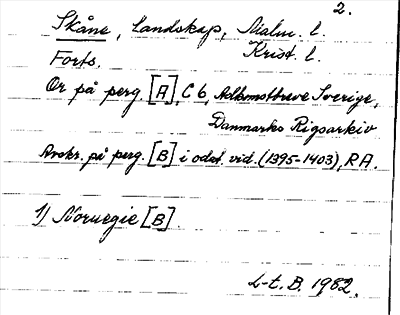 2.
Skåne, Landskap, Malm. l.
Krist. l.
Forts.
Or på perg. [A], C 6, Adkomstbreve Sverige,
Danmarks Rigsarkiv
Avskr. på perg. [B] i odat. vid. (1395-1403), RA.
1) Noruegie [B].
L-t. B. 1982.